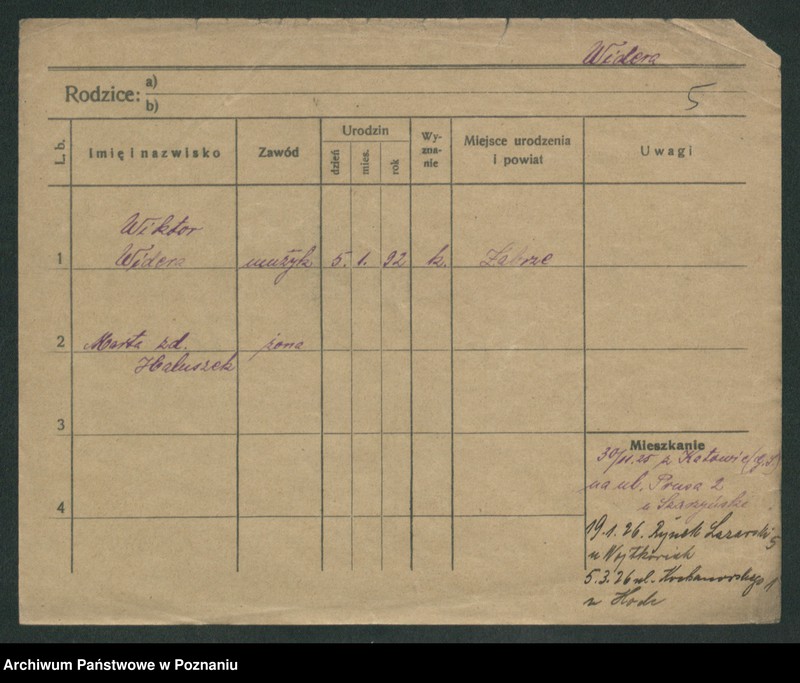 Widera
Rodzice: a)
b)
5
L. b.
Imię i nazwisko
Zawód
Urodzin
dzień
mies.
rok
Wy-
zna-
nie
Miejsce urodzenia
i powiat
Uwagi
Wiktor
1 Widera muzyk 5. 1. 92 k. Zabrze
2 Marta zd. żona
Haluszek
3
4
Mieszkanie
30/11.25 z Katowic (G.S.)
na ul. Prusa 2
u
19.1.26. Rynek Lazarski 5
u
5.3.26 ul. Kochanowskiego 1
u
Archiwum Państwowe w Poznaniu